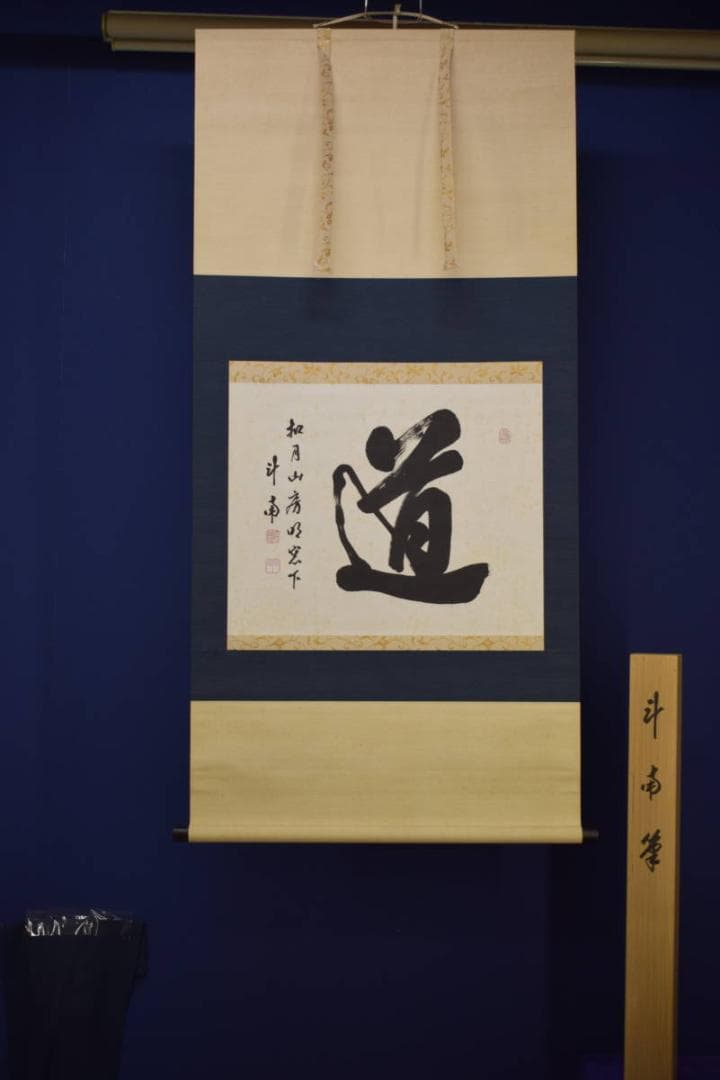 道
扣月山房明窓下
斗南
斗南筆